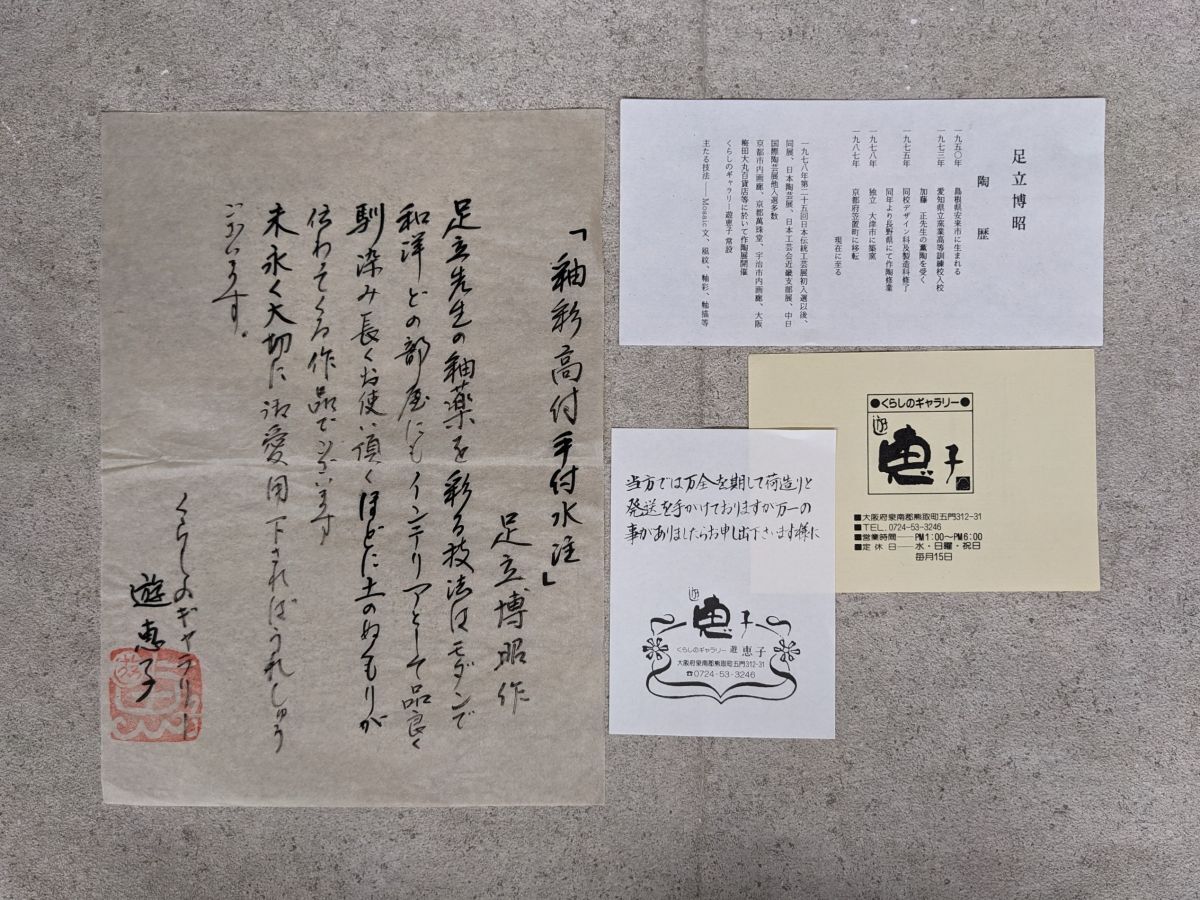 「釉彩高付手付水注」
足立博昭作
足立先生の釉薬を彩る技法はモダンで
和洋どの部屋にもインテリアとして品良く
馴染み長くお使い頂くほどに土のぬくもりが
伝わってくる作品でございます
末永く大切に御愛用下さればうれしゅう
ございます。
くらしのギャラリー
遊恵子
足立博昭
陶歴
一九五〇年 島根県安来市に生まれる
一九七三年 愛知県立窯業高等訓練校入校
加藤 正先生の薫陶を受く
一九七五年 同校デザイン科及製造科修了
同年より長野県にて作陶修業
一九七八年 独立 大津市に築窯
一九八七年 京都府笠置町に移転
現在に至る
一九七八年第二十五回日本伝統工芸展初入選以後、
同展、日本陶芸展、日本工芸会近畿支部展、中日
国際陶芸展他入選多数
京都市内画廊、京都萬珠堂、宇治市内画廊、大阪
梅田大丸百貨店等に於いて作陶展開催
くらしのギャラリー遊恵子 常設
主たる技法――Mosaic文、風紋、釉彩、釉描等
●くらしのギャラリー●
遊恵子
■大阪府泉南郡熊取町五門312-31
■TEL. 0724-53-3246
■営業時間――PM1:00〜PM6:00
■定休日――水・日曜・祝日
毎月15日
当方では万全を期して荷造りと
発送を手がけておりますが万一の
事がありましたらお申し出下さいます様に
遊恵子
くらしのギャラリー 遊恵子
大阪府泉南郡熊取町五門312-31
☎0724-53-3246